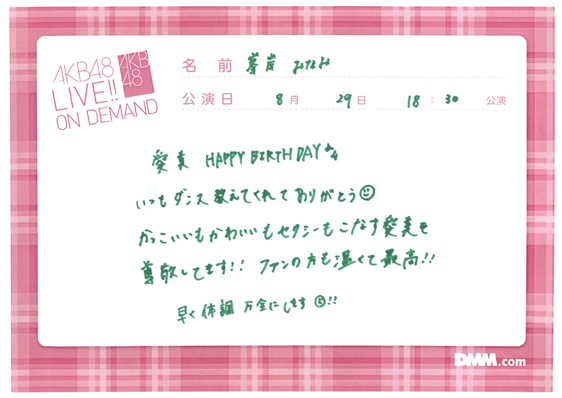 AKB48
LIVE!!
ON DEMAND
AKB
48
名前 峯岸 みなみ
公演日 8月 29日 18:30 公演
愛美 HAPPY BIRTHDAY
いつもダンス教えてくれてありがとう
かっこいいもかわいいもセクシーもこなす愛美を
尊敬してます!! ファンの方も温くて最高!!
早く体調 万全にします !!
DMM.com